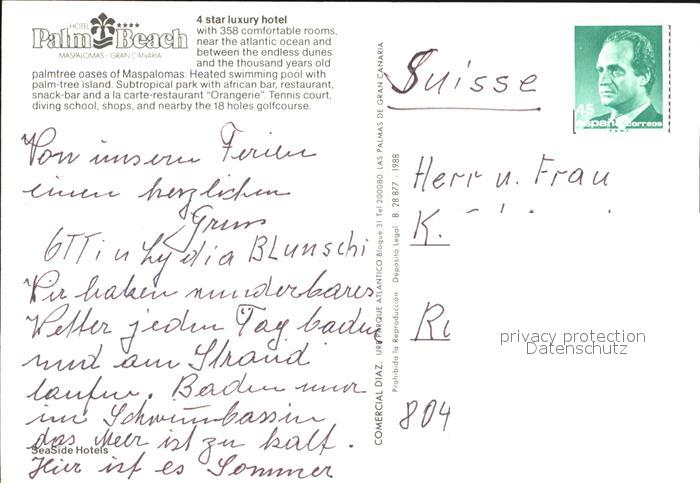 HOTEL ****
Palm Beach
MASPALOMAS · GRAN CANARIA
4 star luxury hotel
with 358 comfortable rooms,
near the atlantic ocean and
between the endless dunes
and the thousand years old
palmtree oases of Maspalomas. Heated swimming pool with
palm-tree island. Subtropical park with african bar, restaurant,
snack-bar and a la carte-restaurant "Orangerie". Tennis court,
diving school, shops, and nearby the 18 holes golfcourse.
Von unsern Ferien
einen herzlichen
Gruss
Otti u Lydia Blunschi
Wir haben wunderbares
Wetter jeden Tag baden
und am Strand
laufen. Baden nur
im Schwimmbassin
das Meer ist zu kalt.
Hier ist es Sommer
SeaSide Hotels
COMERCIAL DIAZ, URB. PARQUE ATLANTICO Bloque 31 Tel 200080. LAS PALMAS DE GRAN CANARIA
Prohibida la Reproducción Deposito Legal B. 28.877 - 1988
45
españa correos
Suisse
Herr u. Frau
K.
Ru
804
privacy protection
Datenschutz